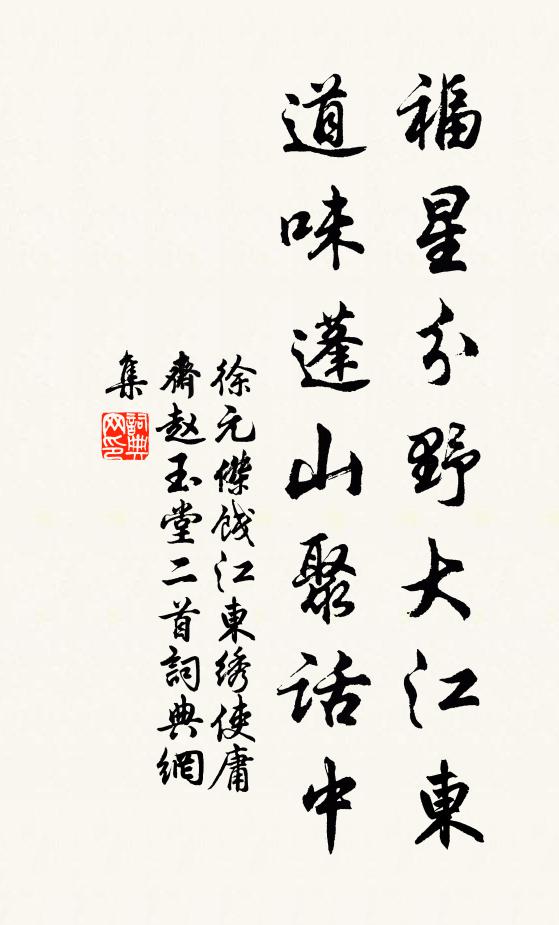 福星分野大江東
道味蓬山聚話中
徐元傑餞江東绣使庸
齋赵玉堂二首詞典網
集
詞典网印